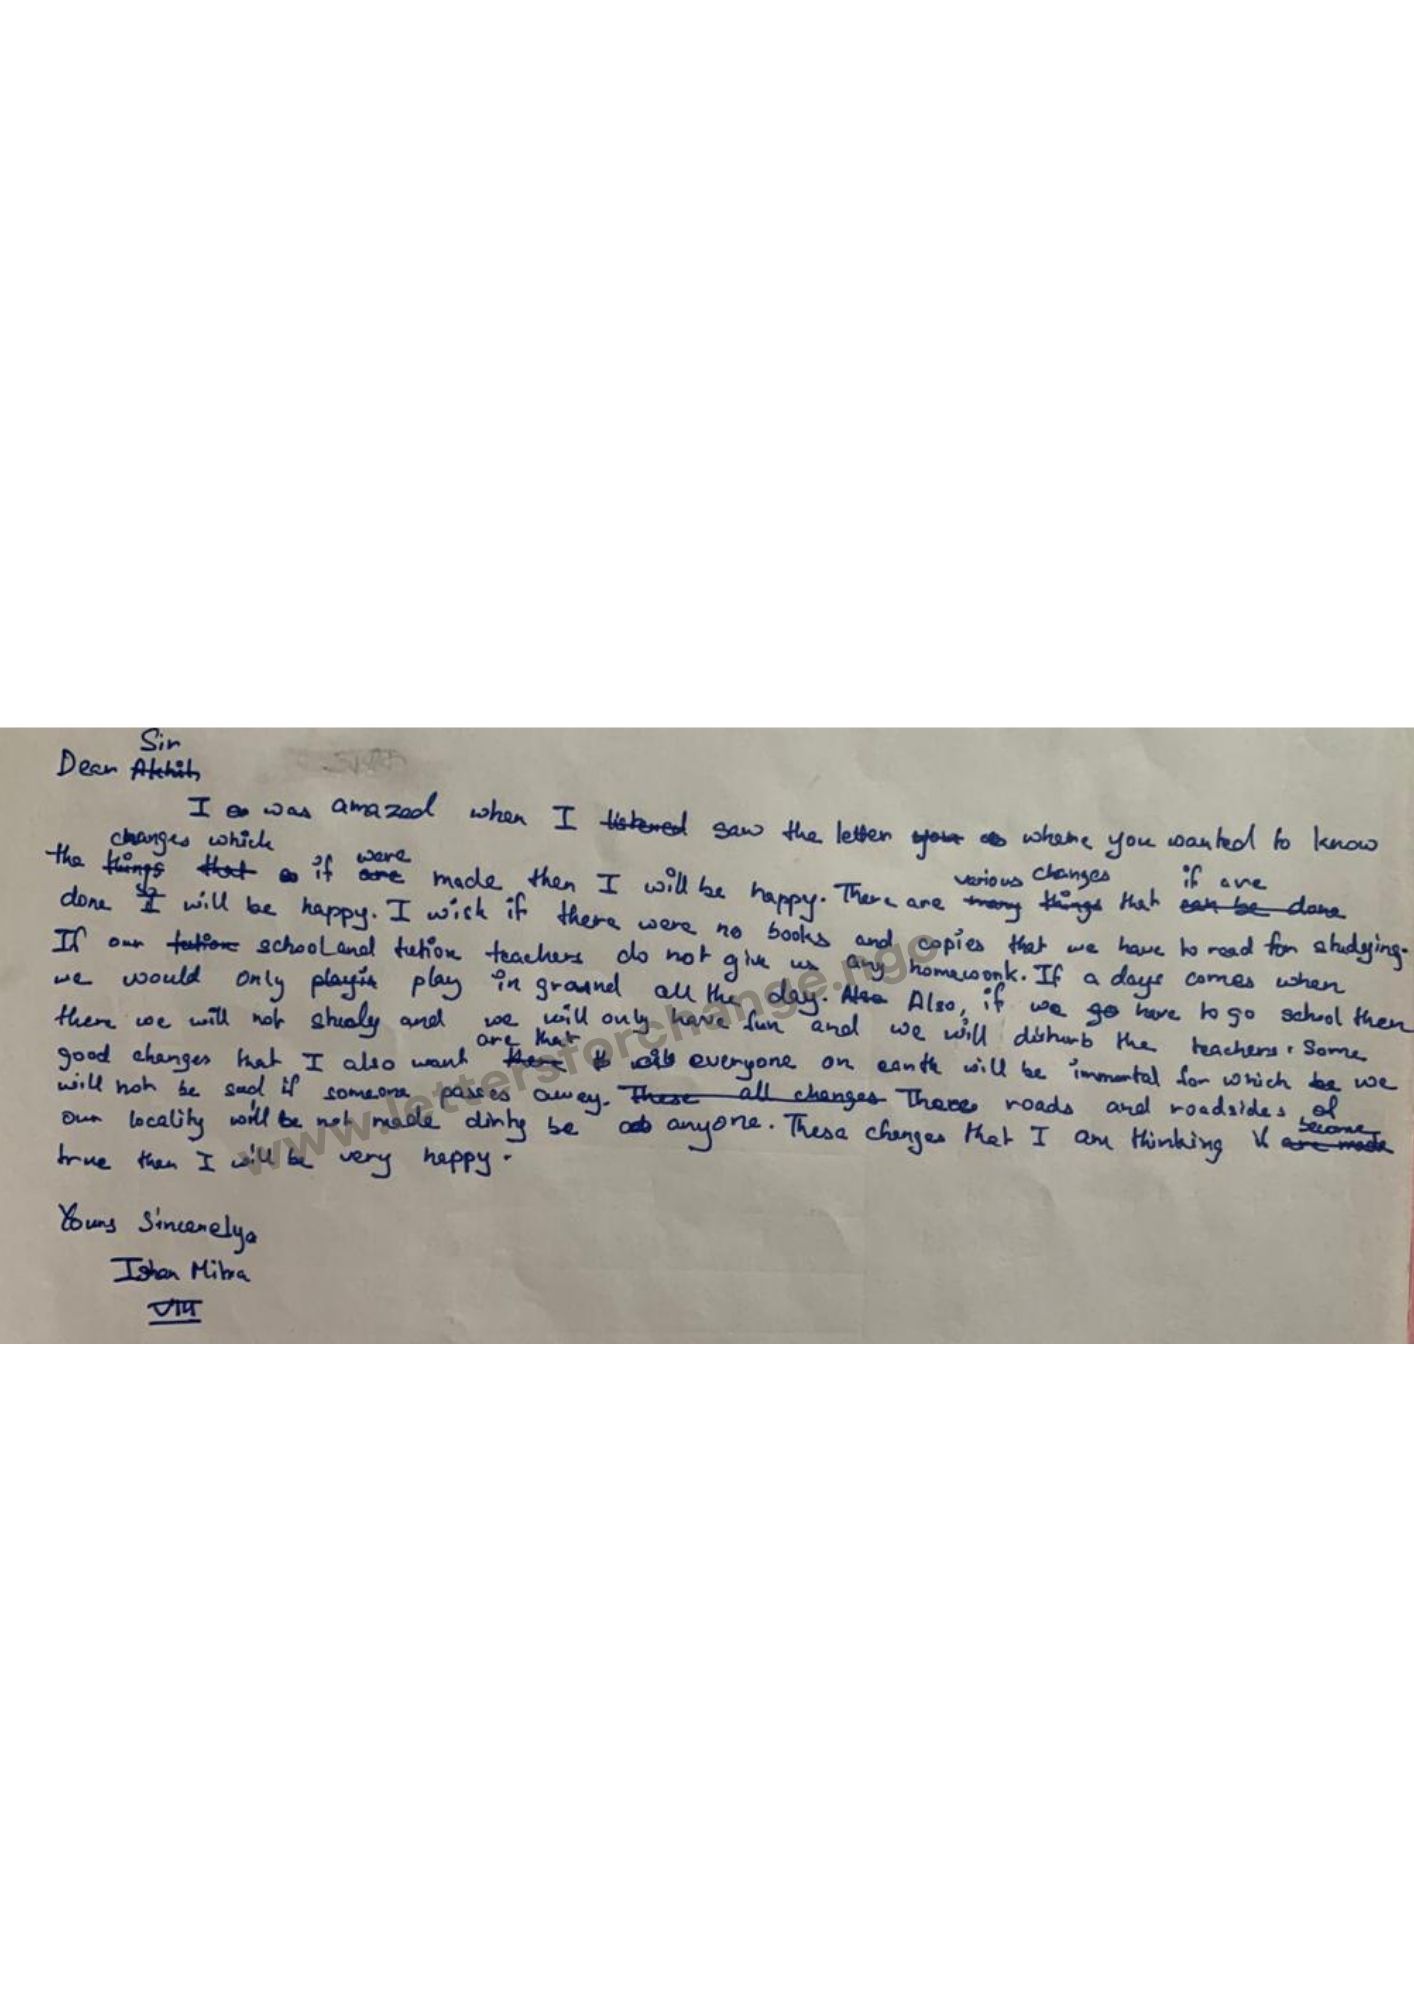 Sir
Dear Akhil,
I was amazed when I listened saw the letter your where you wanted to know
changes which were various changes if are
the things that if are made then I will be happy. There are many things that can be done
done I will be happy. I wish if there were no books and copies that we have to read for studying.
If our tution school and tution teachers do not give us any homework. If a days comes when
we would only playin play in ground all the day. Also Also, if we go have to go school then
there we will not study and we will only have fun and we will disturb the teachers. Some
are that
good changes that I also want there everyone on earth will be immortal for which be we
will not be sad if someone passes away. These all changes There roads and roadsides of
become
our locality will be not made dirty be anyone. These changes that I am thinking if are made
true then I will be very happy.
Yours Sincerely
Ishan Mitra
VIII
www.lettersforchange.ngo